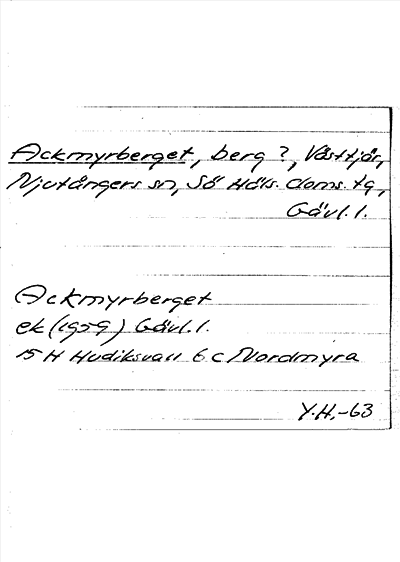 Ackmyrberget, berg?, Västtjär,
Njutångers sn, Sö Häls. doms. tg,
Gävl. l.
Ackmyrberget
ek (1959) Gävl. l.
15 H Hudiksvall 6 c Nordmyra
Y.H. -63